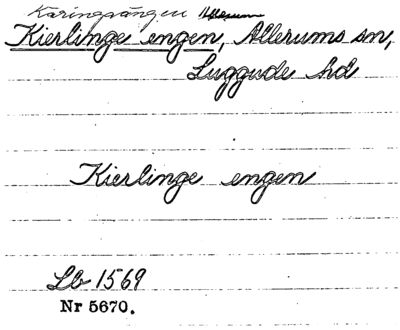 Käringvången Allerum
Kierlinge engen, Allerums sn,
Luggude hd
Kierlinge engen
Lb 1569
Nr 5670.